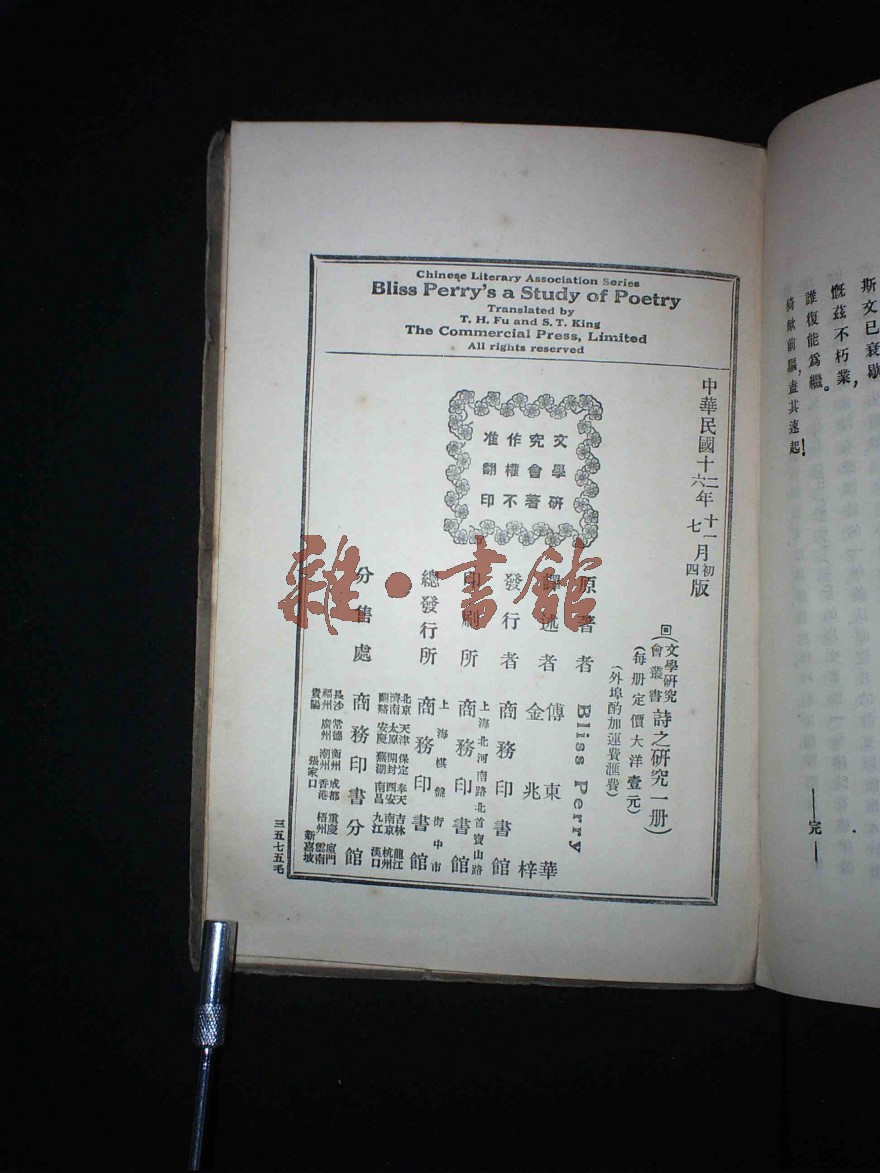 斯文已衰歇
慨茲不朽業，
誰復能爲繼。
猗歟前騶，盍其速起！
——完——
Chinese Literary Association Series
Bliss Perry's a Study of Poetry
Translated by
T. H. Fu and S. T. King
The Commercial Press, Limited
All rights reserved
中華民國十二年十一月初版
六 七 四
文學研
究會著
作權不
准翻印
(文學研究會叢書)詩之研究一册)
(每册定價大洋壹元)
(外埠酌加運費滙費)
原著者 Bliss Perry
譯述者 傅東華
金兆梓
發行者 商務印書館
上海北河南路北首寶山路
印刷所 商務印書館
上海棋盤街中市
總發行所 商務印書館
北京 天津 保定 奉天 吉林 龍江
濟南 太原 開封 西安 南京 杭州
安慶 蕪湖 南昌 九江 漢口
分售處 商務印書分館
長沙 常德 衡州 成都 重慶 廈門
福州 廣州 潮州 香港 梧州 雲南
貴陽 張家口 新嘉坡
三五七五毛
雜·書館